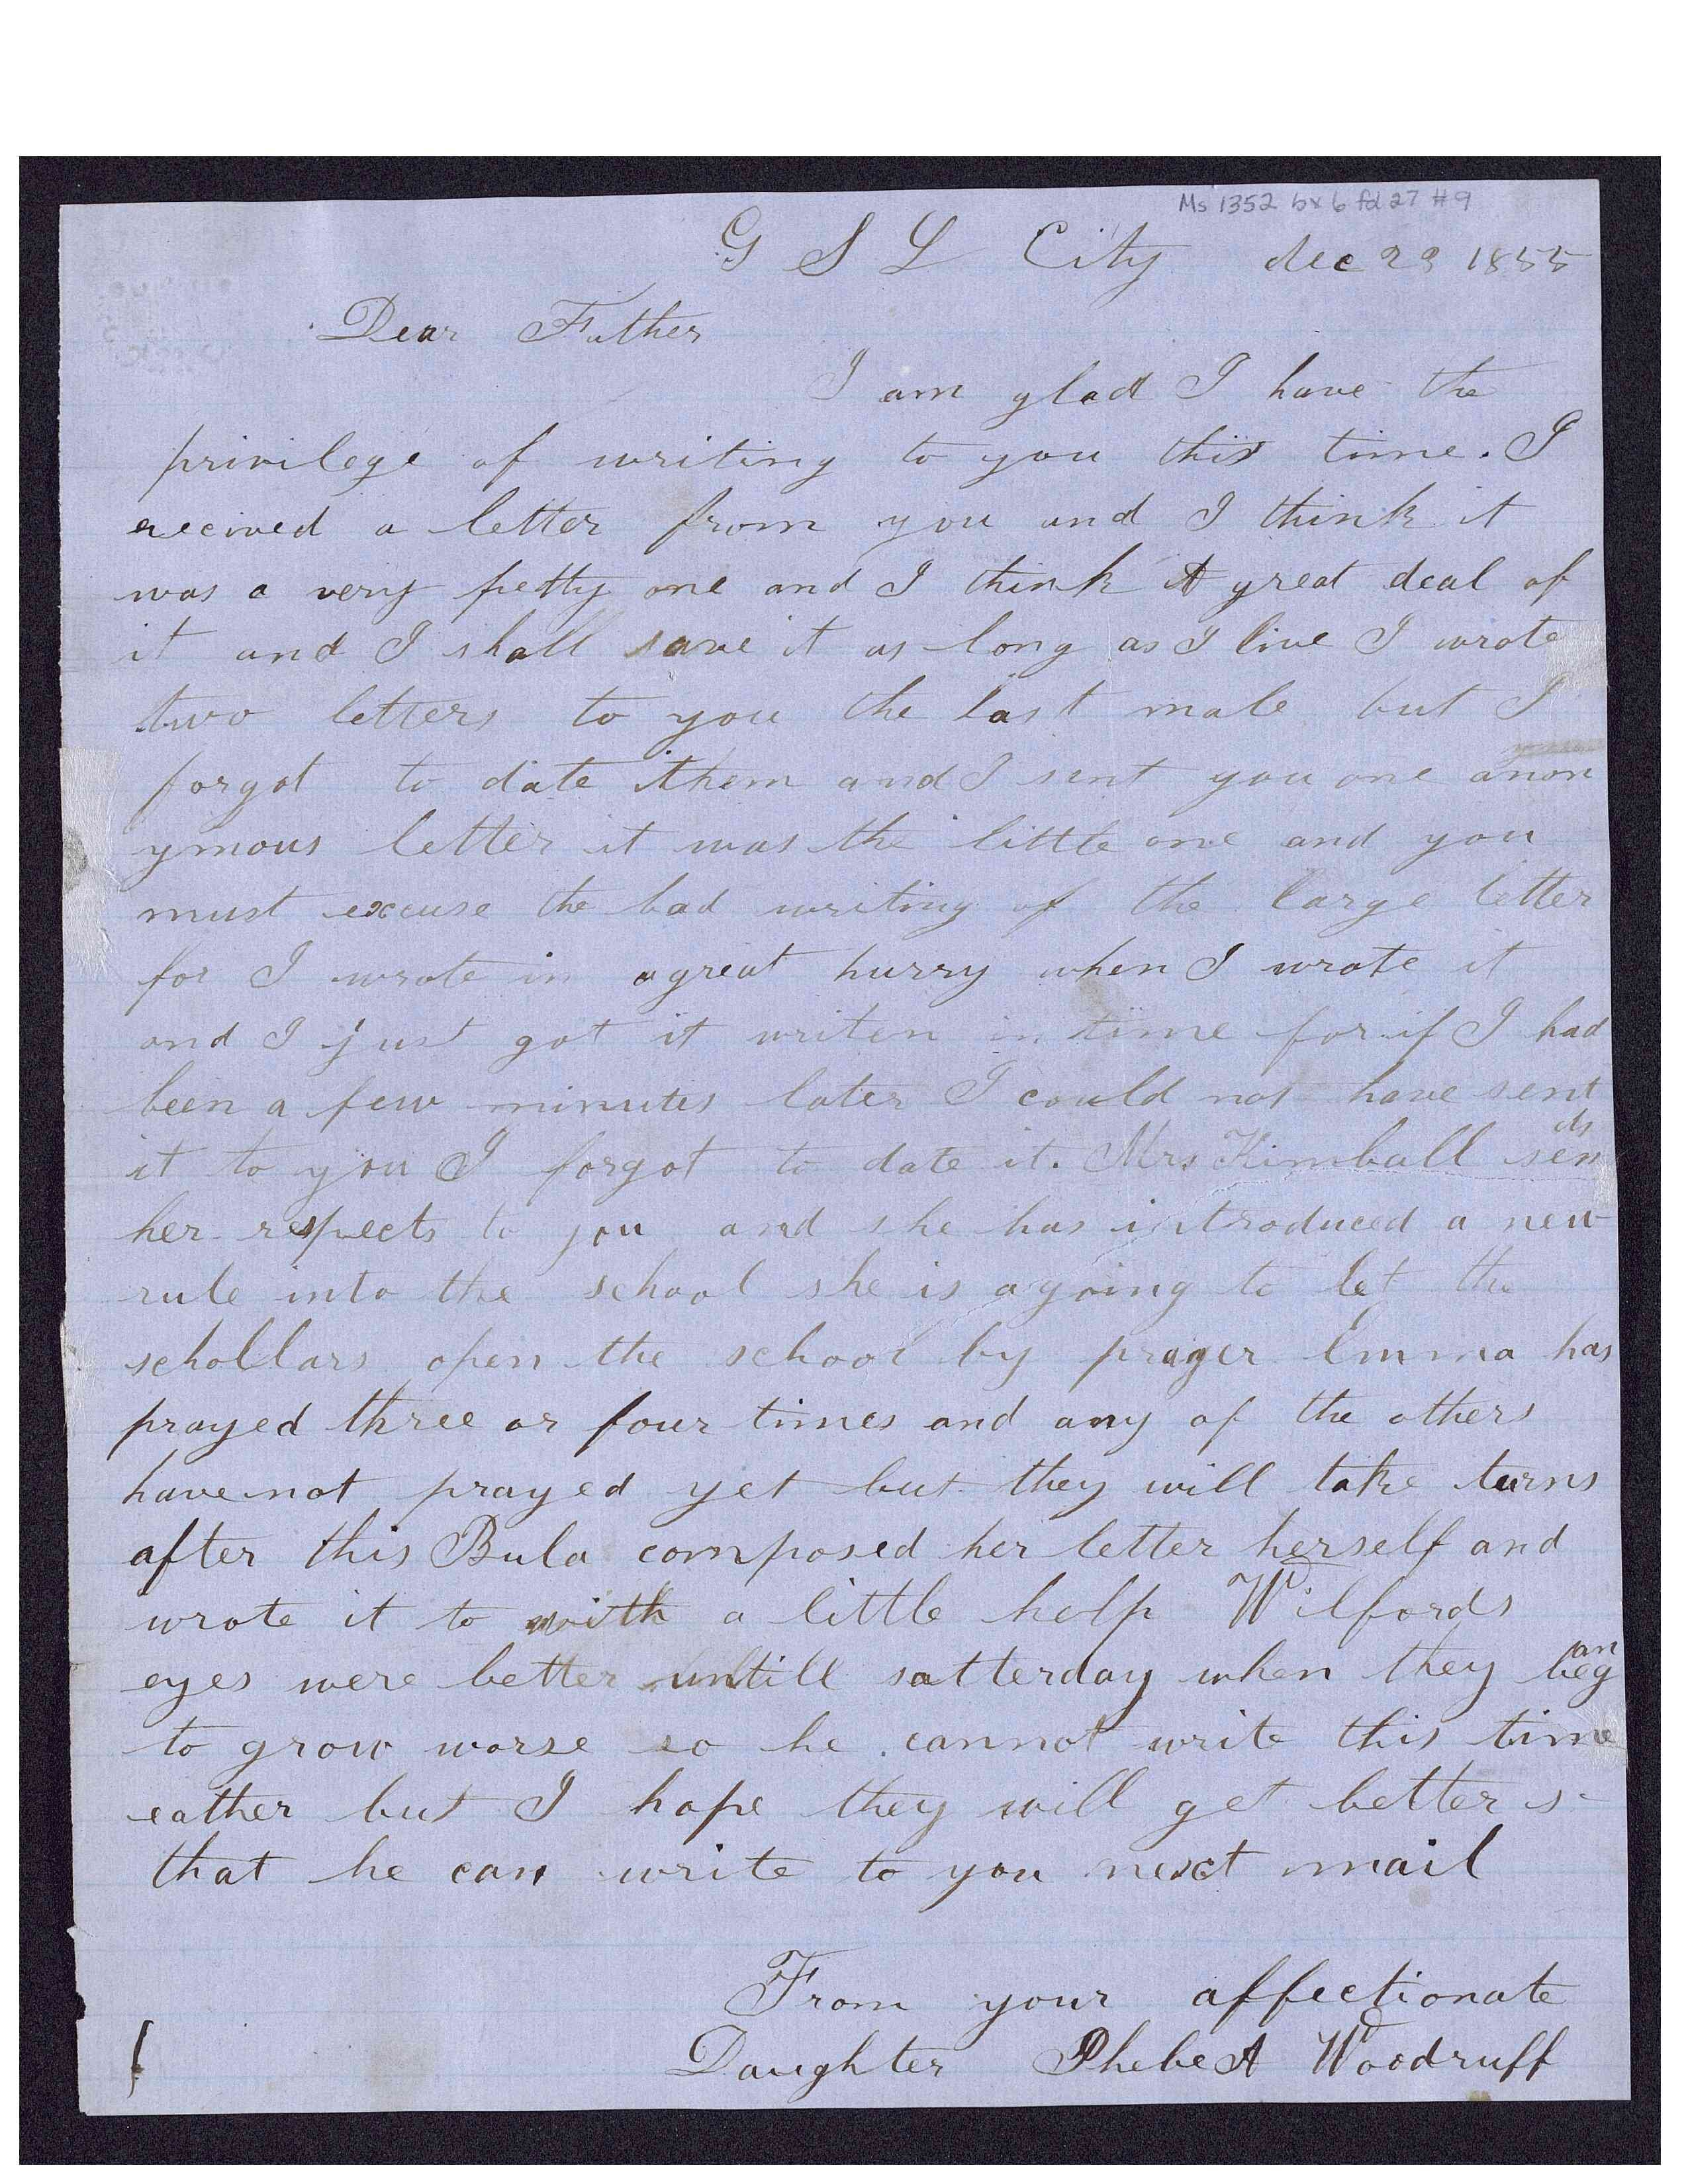 Ms 1352 bx 6 fd 27 #9
G S L City dec 23 1855
Dear Father
I am glad I have the
privilege of writing to you this time. I
recived a letter from you and I think it
was a very petty one and I think A great deal of
it and I shall save it as long as I live I wrote
two letters to you the last male but I
forgot to date them and I sent you one anon
ymous letter it was the little one and you
must excuse the bad writing of the large letter
for I wrote in a great hurry when I wrote it
and I just got it writen in time for if I had
been a few minutes later I could not have sent
it to you I forgot to date it. Mrs Kimball sends
her respects to you and she has introduced a new
rule into the school she is agoing to let the
schollars open the school by prayer Emma has
prayed three or four times and any of the others
have not prayed yet but they will take turns
after this Bula composed her letter herself and
wrote it to with a little help Wilfords
eyes were better untill satterday when they began
to grow worse so he cannot write this time
eather but I hope they will get better s
that he can write to you next mail
From your affectionate
Daughter Phebe A Woodruff